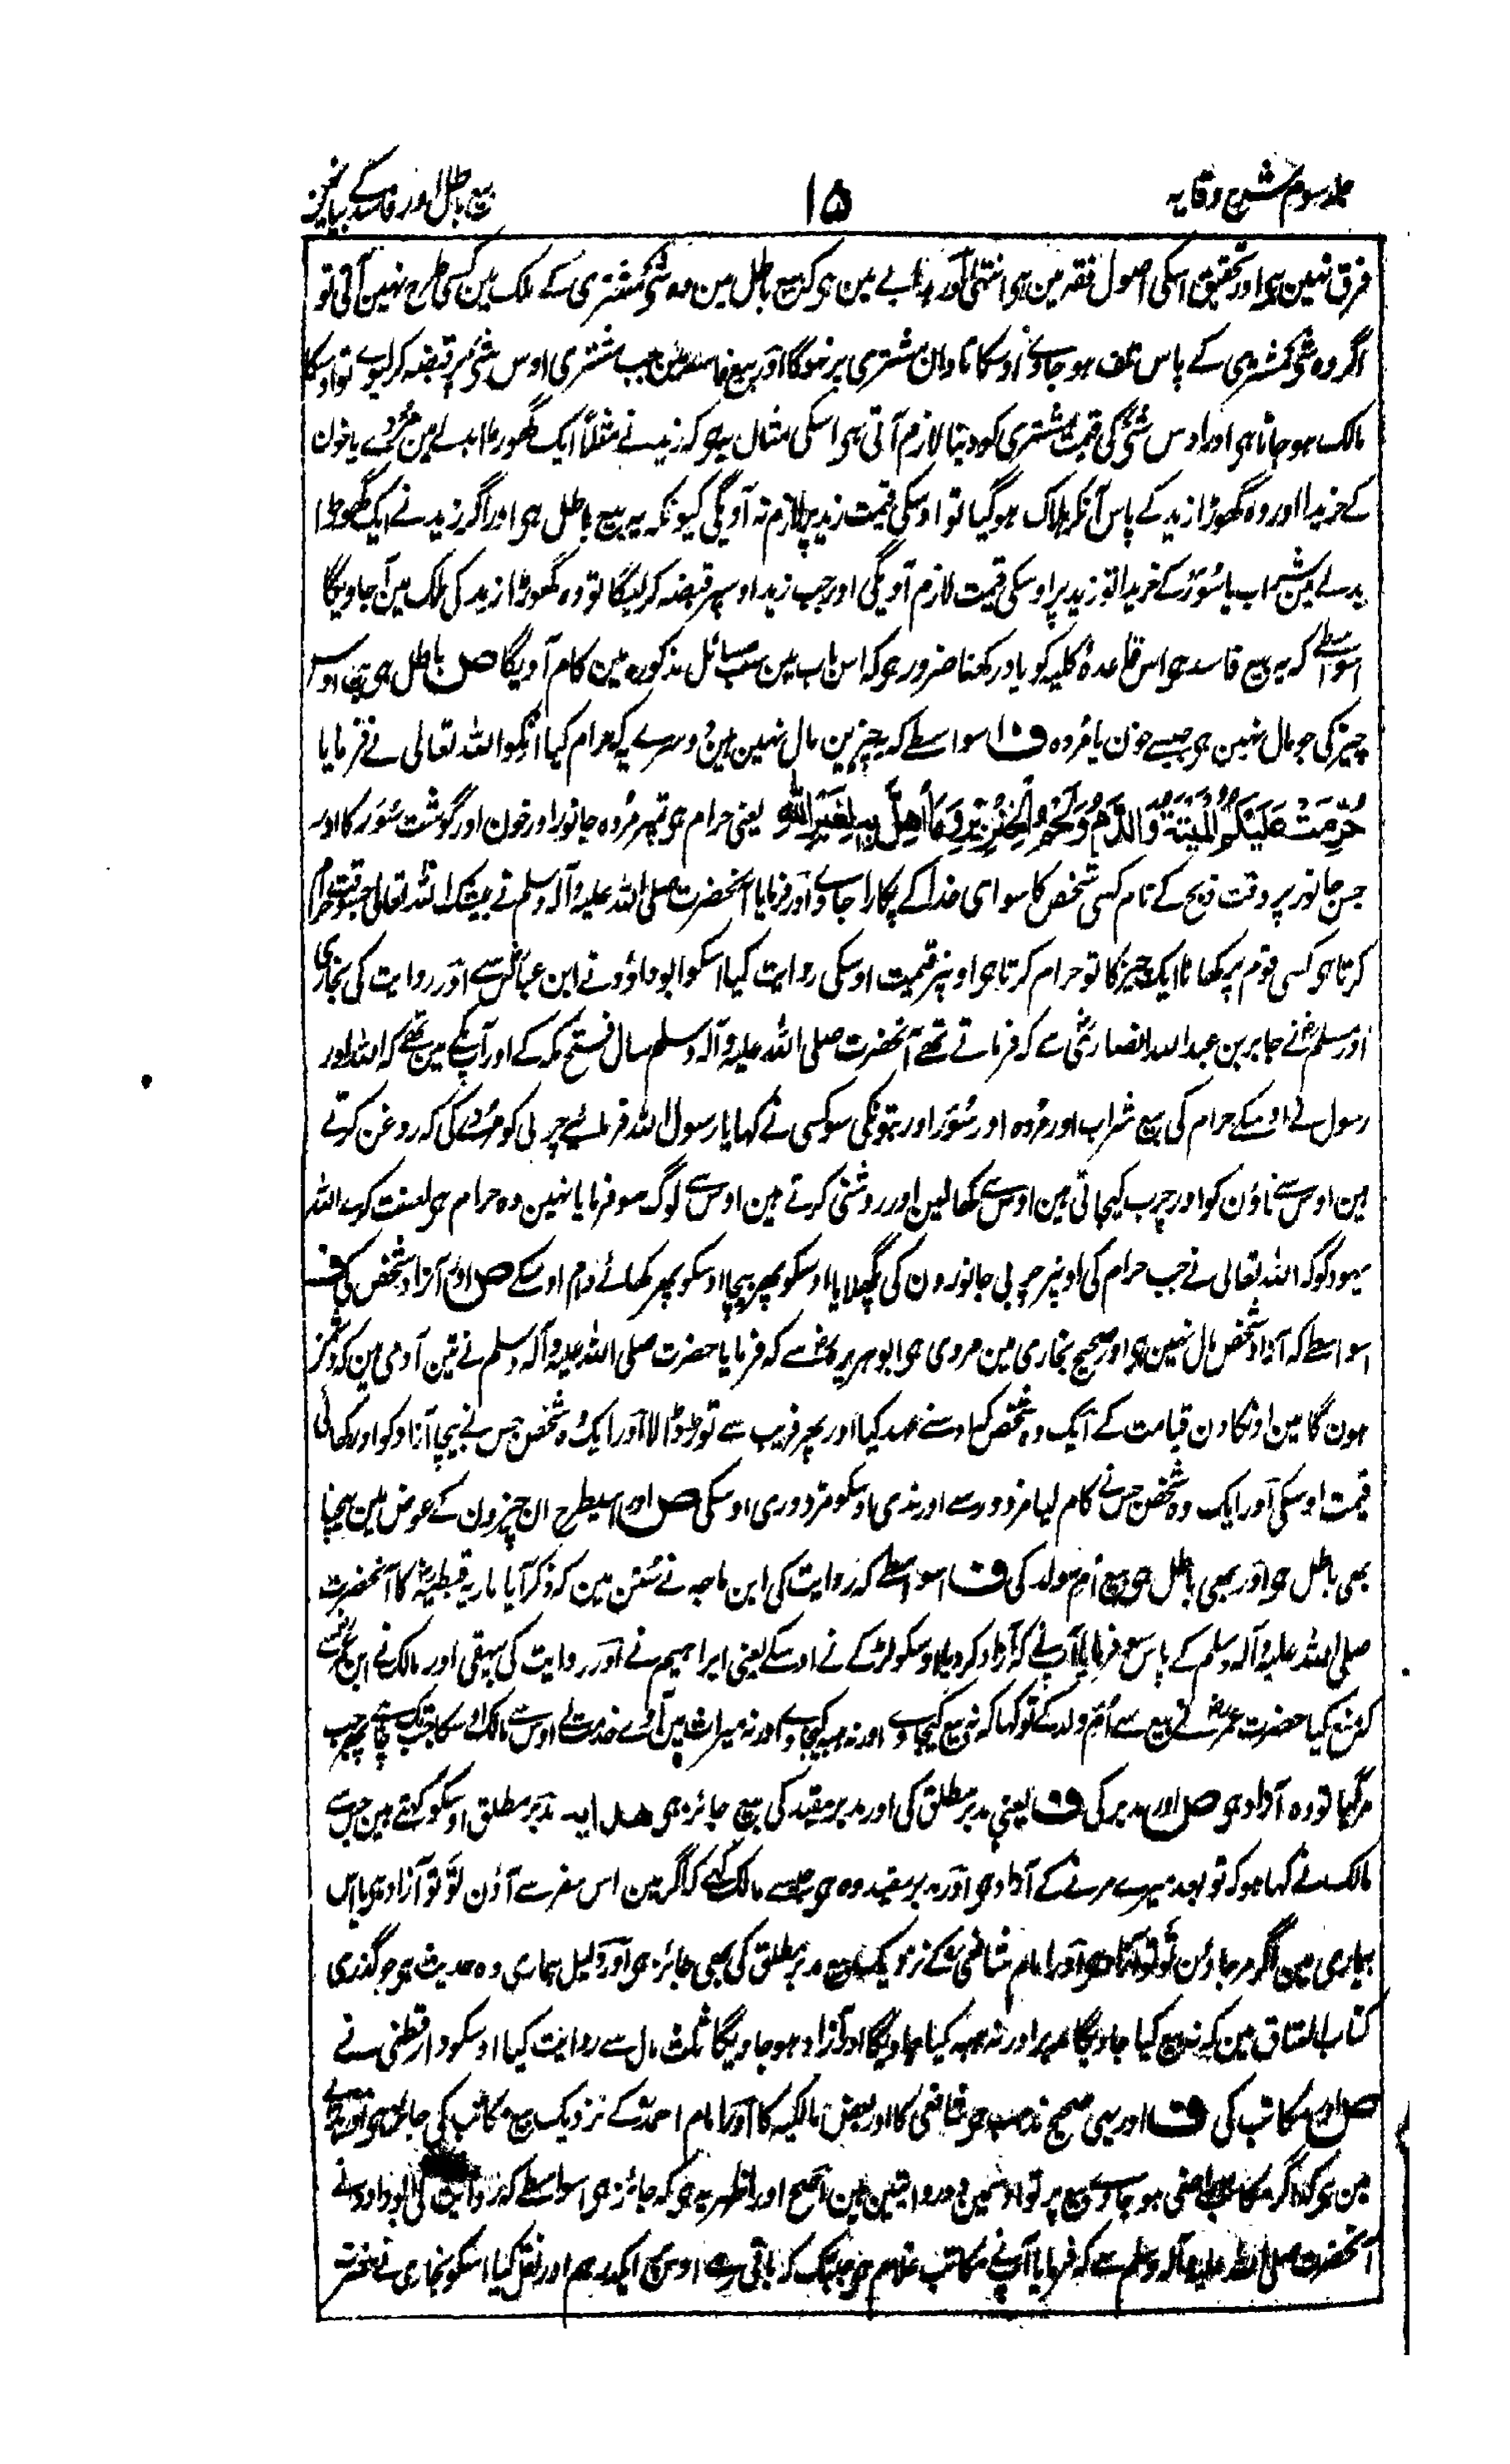 جلد سوم شرح وقایہ
۱۵
بیع باطل اور فاسد کے بیان مین
فرق نہین ہی اور تحقیق اسکی اصول فقہ مین ہی انتہی اور ہدایے مین ہی کہ بیع باطل مین وہ شی مشتری کے ملک مین کسی طرح نہین آتی تو
اگر وہ شی مشتری کے پاس تلف ہو جاوے اوسکا تاوان مشتری پر نہوگا اور بیع فاسد مین جب مشتری اوس شی پر قبضہ کر لیوے تو اوسکا
مالک ہو جاتا ہی اور اوس شی کی قیمت مشتری کو دینا لازم آتی ہی اسکی مثال یہ ہی کہ زید نے مثلاً ایک گھوڑا بدلے مین مردے یا خون
کے خریدا اور وہ گھوڑا زید کے پاس آنکر ہلاک ہو گیا تو اوسکی قیمت زید پر لازم نہ آویگی کیونکہ یہ بیع باطل ہی اور اگر زید نے ایک گھوڑا
بدلے مین شراب یا سُوَر کے خریدا تو زید پر اوسکی قیمت لازم آویگی اور جب زید اوسپر قبضہ کر لیگا تو وہ گھوڑا زید کی ملک مین آ جاویگا
اسواسطے کہ یہ بیع فاسد ہی اس قاعدۂ کلیہ کو یاد رکھنا ضرور ہی کہ اس باب مین سب مسائل مذکورہ مین کام آویگا ص باطل ہی بیع اوس
چیز کی جو مال نہین ہی جیسے خون یا مُردہ ف اسواسطے کہ یہ چیزین مال نہین ہین دوسرے یہ کہ حرام کیا انکو اللہ تعالی نے فرمایا
حُرِّمَتْ عَلَيْكُمُ الْمَيْتَةُ وَالدَّمُ وَلَحْمُ الْخِنْزِيْرِ وَمَا اُهِلَّ بِهٖ لِغَيْرِ اللّٰهِ یعنی حرام ہی تمپر مُردہ جانور اور خون اور گوشت سُوَر کا اور
جس جانور پر وقت ذبح کے نام کسی شخص کا سوای خدا کے پکارا جاوے اور فرمایا آنحضرت صلی اللہ علیہ وآلہ وسلم نے بیشک اللہ تعالی جسوقت حرام
کرتا ہی کسی قوم پر کھانا ایک چیز کا تو حرام کرتا ہی اونپر قیمت اوسکی روایت کیا اسکو ابوداؤد نے ابن عباس سے اور روایت کی بخاری
اور مسلم نے جابر بن عبداللہ انصاری سے کہ فرماتے تھے آنحضرت صلی اللہ علیہ وآلہ وسلم سال فتح مکہ کے اور آپ مکے مین تھے کہ اللہ اور
رسول نے اوسکے حرام کی بیع شراب اور مُردہ اور سُوَر اور بتونکی سو کسی نے کہا یا رسول اللہ فرمائیے چربی کو مُردے کی کہ روغن کرتے
ہین اوس سے ناؤن کو اور چرب کیجاتی ہین اوس سے کھالین اور روشنی کرتے ہین اوس سے لوگ سو فرمایا نہین وہ حرام ہی لعنت کرے اللہ
یہود کو کہ اللہ تعالی نے جب حرام کی اونپر چربی جانورون کی پگھلایا اوسکو پھر بیچا اوسکو پھر کھائے دام اوسکے ص اور آزاد شخص کی ف
اسواسطے کہ آزاد شخص مال نہین ہی اور صحیح بخاری مین مروی ہی ابوہریرہ سے کہ فرمایا حضرت صلی اللہ علیہ وآلہ وسلم نے تین آدمی ہین کہ دشمن
ہون گا مین اونکا دن قیامت کے ایک وہ شخص کہ اوسنے عہد کیا اور پھر فریب سے توڑ ڈالا اور ایک وہ شخص جس نے بیچا آزاد کو اور کھائی
قیمت اوسکی اور ایک وہ شخص جس نے کام لیا مزدور سے اور ندی اوسکو مزدوری اوسکی ص اور اسیطرح ان چیزون کے عوض مین بیچنا
بھی باطل ہی اور بھی باطل ہی بیع اُم ولد کی ف اسواسطے کہ روایت کی ابن ماجہ نے سُنن مین کہ ذکر آیا ماریہ قبطیہ کا آنحضرت
صلی اللہ علیہ وآلہ وسلم کے پاس سو فرمایا آپ نے کہ آزاد کر دیا اوسکو لڑکے نے اوسکے یعنی ابراہیم نے اور روایت کی بیہقی اور مالک نے ابن عمر سے
کہ منع کیا حضرت عمر نے بیع سے اُم ولد کے تو کہا کہ نہ بیع کیجاوے اور نہ ہبہ کیجاوے اور نہ میراث مین آوے خدمت لے اوس سے مالک اوسکا جبتک جیے پھر جب
مر گیا تو وہ آزاد ہی ص اور مدبر کی ف یعنی مدبر مطلق کی اور مدبر مقید کی بیع جائز ہی ہدایہ مدبر مطلق اوسکو کہتے ہین جس سے
مالک نے کہا ہو کہ تو بعد میرے مرنے کے آزاد ہی اور مدبر مقید وہ ہی جسے مالک کہے کہ اگر مین اس سفر سے آؤن تو تو آزاد ہی یا اس
بیماری مین اگر مر جاؤن تو تو آزاد ہی اور امام شافعی کے نزدیک بیع مدبر مطلق کی بھی جائز ہی اور دلیل ہماری وہ حدیث ہی جو گذری
کتاب العتاق مین کہ نہ بیع کیا جاویگا مدبر اور نہ ہبہ کیا جاویگا اور آزاد ہو جاویگا ثلث مال سے روایت کیا اوسکو دارقطنی نے
ص اور مکاتب کی ف اور یہی صحیح مذہب ہی شافعی کا اور بعض مالکیہ کا اور امام احمد کے نزدیک بیع مکاتب کی جائز ہی اور ہدایے
مین ہی کہ اگر مکاتب راضی ہو جاوے بیع پر تو اوسمین دو روایتین ہین اصح اور اظہر یہ ہی کہ جائز ہی اسواسطے کہ روایت کی ابوداود نے
آنحضرت صلی اللہ علیہ وآلہ وسلم سے کہ فرمایا آپ نے مکاتب غلام ہی جبتک کہ باقی رہے اوسپر ایک درہم اور نقل کیا اسکو بخاری نے حضرت